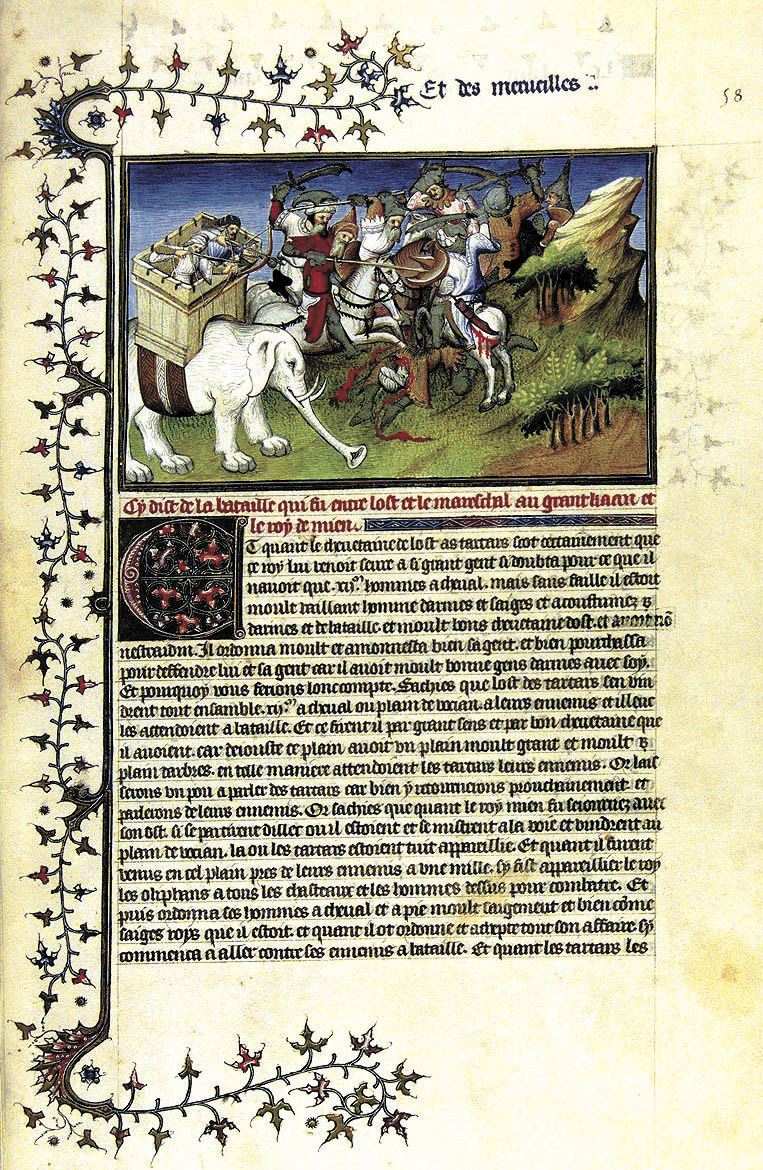 Et des merueilles
58
Cy dist de la bataille qui fu entre lost et le mareschal au grant kaan et
le roy de mien.
Et quant le cheuetaine de lost as tartars scot certainement que
ce roy lui venoit seure a si grant gent si doubta pour ce que il
nauoit que .xij.ᵐ hommes a cheual. mais sans faille il estoit
moult vaillant homme darmes et saiges et acoustumez
darmes et de bataille et moult bons cheuetaine dost. et auoit nō
nestraidin. Il ordonna moult et amonnesta bien sa gent. et bien pourchassa
pour deffendre lui et sa gent car il auoit moult bonne gens darmes auec soy.
Et pourquoy vous feroins lonc compte. Sachies que lost des tartars sen vin
drent tout ensamble .xij.ᵐ a cheual ou plain de vocian. a leurs ennemis et illeuc
les attendoient a bataille. Et ce firent il par grant sens et par bon cheuetaine que
il auoient. car deiouste ce plain auoit vn plain moult grant et moult
plain darbres. en telle maniere attendoient les tartars leurs ennemis. Or lais
serons vn pou a parler des tartars car bien y retournerons prouchainement et
parlerons de leurs ennemis. Or sachies que quant le roy mien fu seiournez auec
son ost. si se partirent dillec ou il estoient et se mistrent a la voie et vindrent au
plain de vocian. la ou les tartars estoient tuit appareillie. Et quant il furent
venus en cel plain pres de leurs ennemis a vne mille. sy fist appareillier le roy
les oliphans a tous les chasteaux et les hommes dessus pour combatre. Et
puis ordonna ses hommes a cheual et a pie moult saigement et bien cōme
saiges roys que il estoit. et quant il ot ordonne et tout son affaire sy
commenca a aller contre ses ennemis a bataille. Et quant les tartars les